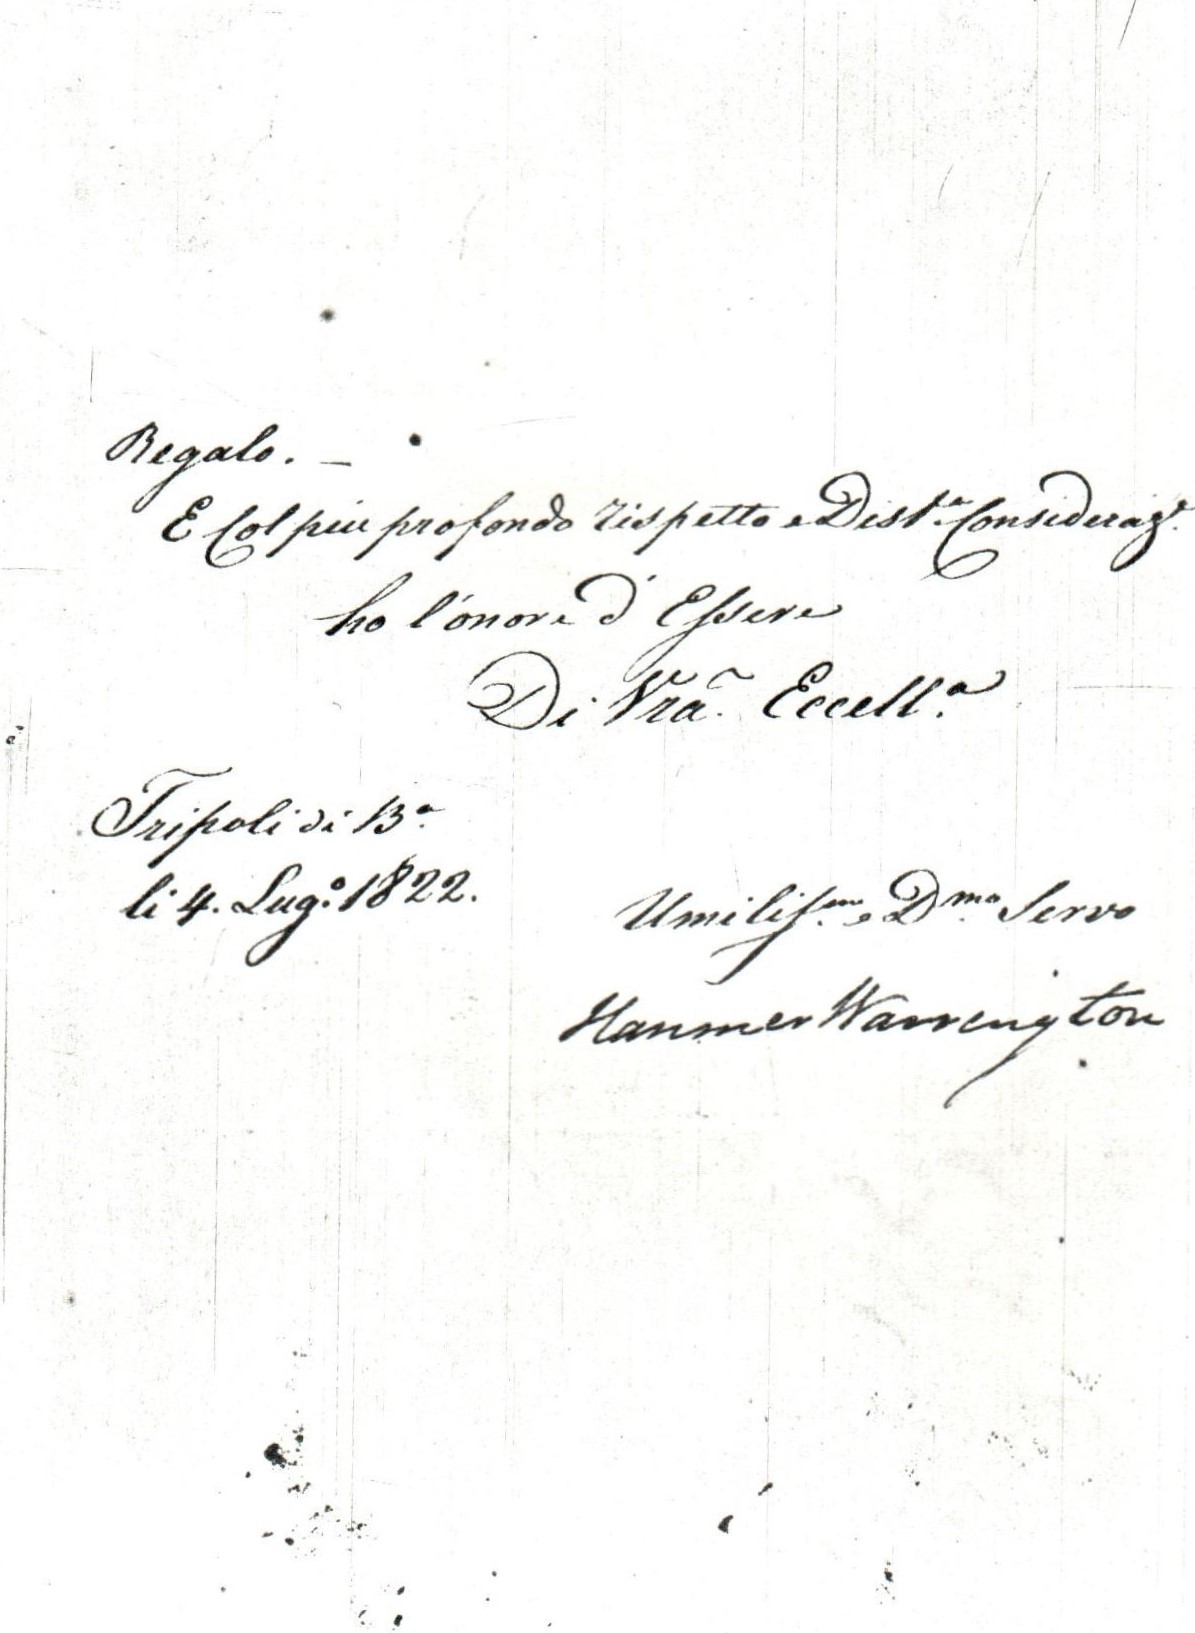 Regalo. —
E Col piu profondo rispetto e Dist.ª Consideraz.e
ho l'onore d'Essere
Di Vra. Eccell.ª
Tripoli di B.ª
li 4. Lug.º 1822.
Umilis.mo e D.mo Servo
Hanmer Warrington